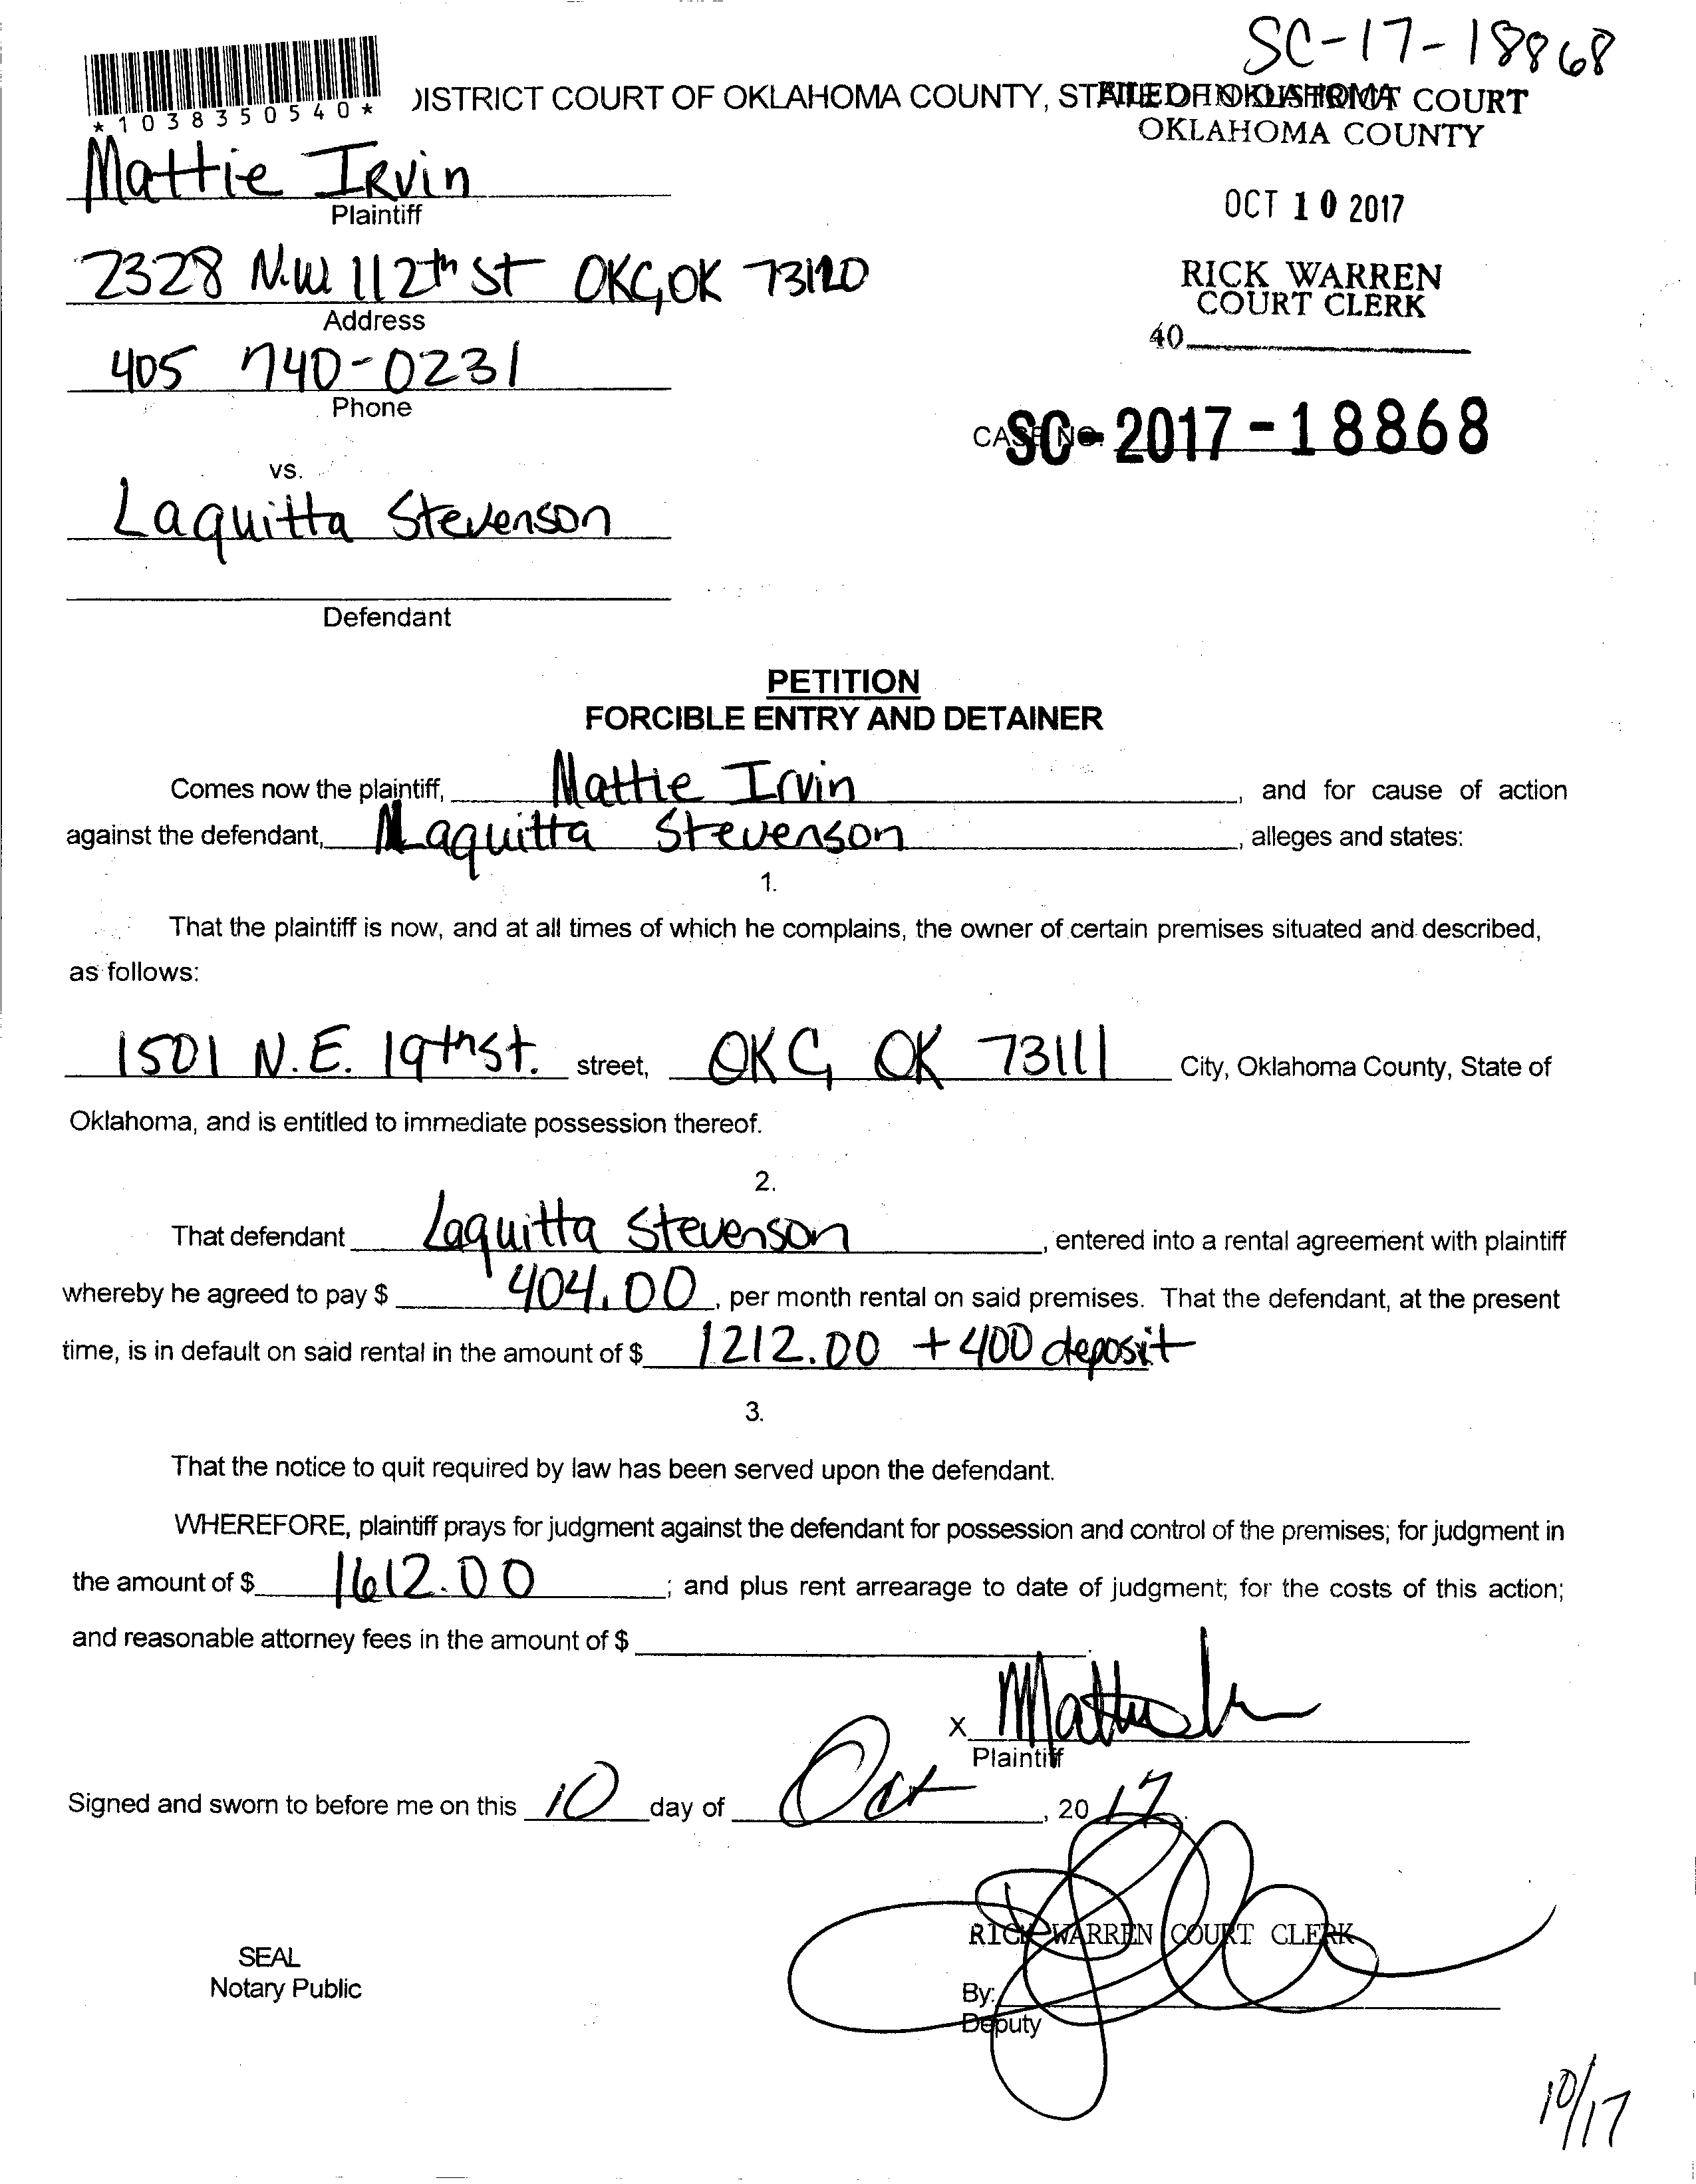 SC-17-18868
*1038350540*
DISTRICT COURT OF OKLAHOMA COUNTY, STATE OF OKLAHOMA
FILED IN DISTRICT COURT
OKLAHOMA COUNTY
Mattie Irvin
Plaintiff
OCT 10 2017
2328 N.W 112th St OKC, OK 73120
Address
RICK WARREN
COURT CLERK
40
405 740-0231
Phone
CASE NO. SC-2017-18868
vs.
Laquitta Stevenson
Defendant
PETITION
FORCIBLE ENTRY AND DETAINER
Comes now the plaintiff, Mattie Irvin, and for cause of action
against the defendant, Laquitta Stevenson, alleges and states:
1.
That the plaintiff is now, and at all times of which he complains, the owner of certain premises situated and described,
as follows:
1501 N.E. 19th St. street, OKC, OK 73111 City, Oklahoma County, State of
Oklahoma, and is entitled to immediate possession thereof.
2.
That defendant Laquitta Stevenson, entered into a rental agreement with plaintiff
whereby he agreed to pay $ 404.00, per month rental on said premises. That the defendant, at the present
time, is in default on said rental in the amount of $ 1212.00 + 400 deposit
3.
That the notice to quit required by law has been served upon the defendant.
WHEREFORE, plaintiff prays for judgment against the defendant for possession and control of the premises; for judgment in
the amount of $ 1612.00; and plus rent arrearage to date of judgment; for the costs of this action;
and reasonable attorney fees in the amount of $
X
Plaintiff
Signed and sworn to before me on this 10 day of Oct, 20 17.
RICK WARREN COURT CLERK
SEAL
Notary Public
By:
Deputy
10/17